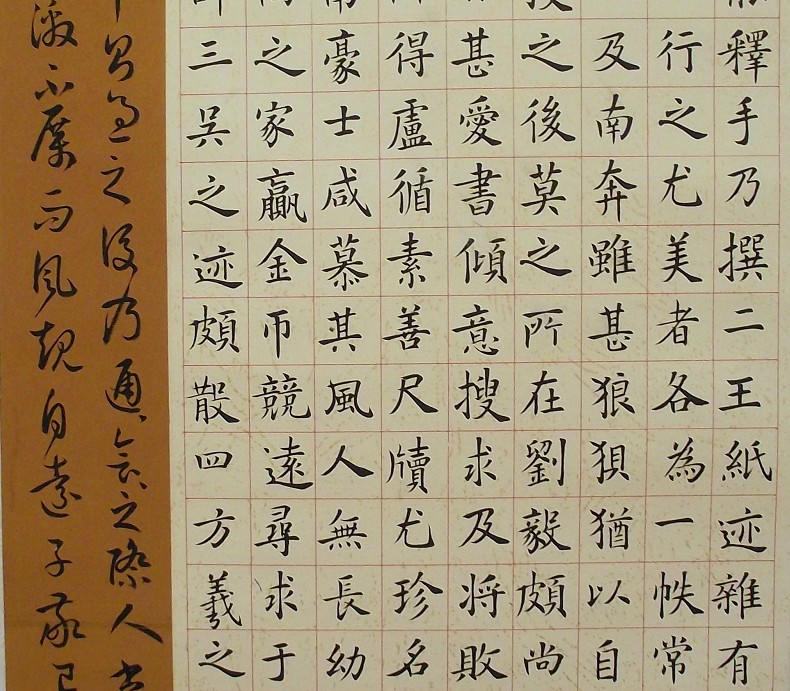 釋手乃撰二王紙迹雜有
行之尤美者各為一帙常
及南奔雖甚狼狽猶以自
之後莫之所在劉毅頗尚
甚愛書傾意搜求及將敗
得盧循素善尺牘尤珍名
豪士咸慕其風人無長幼
之家贏金帀競遠尋求于
三吳之迹頗散四方羲之
過之後乃通會之際人書
激不厲而風規自遠子敬已